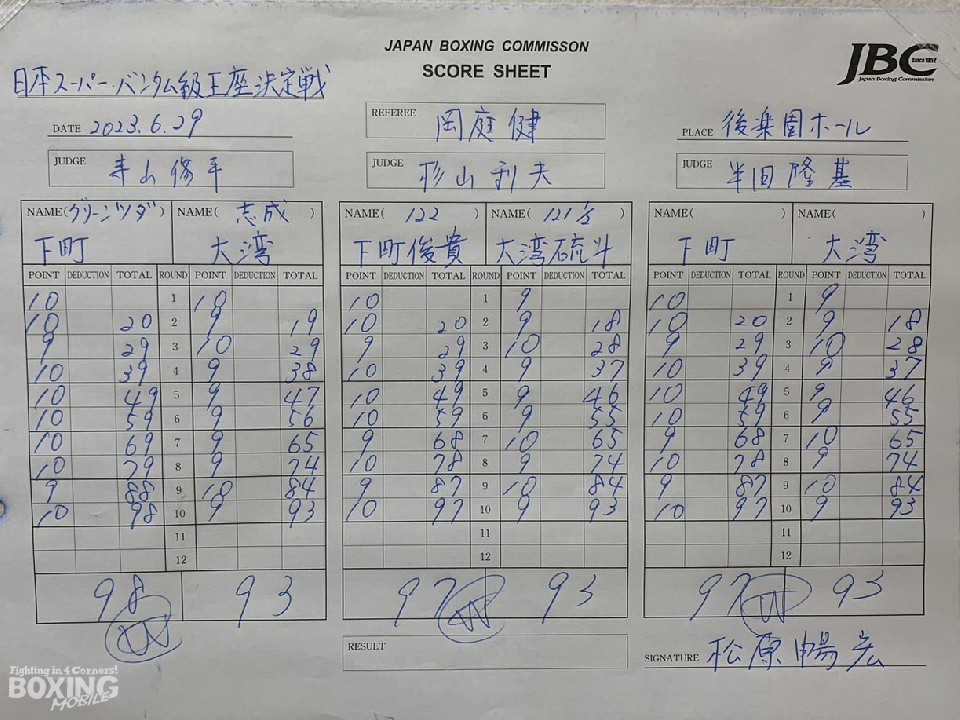 JAPAN BOXING COMMISSON
SCORE SHEET
JBC Since 1952
Japan Boxing Commission
日本スーパー・バンタム級王座決定戦
DATE 2023.6.29
REFEREE 岡庭健
PLACE 後楽園ホール
JUDGE 寺山修平
JUDGE 杉山利夫
JUDGE 半田隆基
NAME(グリーンツダ) NAME( 志成 ) NAME( 122 ) NAME( 121 1/2 ) NAME( ) NAME( )
下町 大湾 下町俊貴 大湾硫斗 下町 大湾
POINT DEDUCTION TOTAL ROUND POINT DEDUCTION TOTAL POINT DEDUCTION TOTAL ROUND POINT DEDUCTION TOTAL POINT DEDUCTION TOTAL ROUND POINT DEDUCTION TOTAL
10 1 10 10 1 9 10 1 9
10 20 2 9 19 10 20 2 9 18 10 20 2 9 18
9 29 3 10 29 9 29 3 10 28 9 29 3 10 28
10 39 4 9 38 10 39 4 9 37 10 39 4 9 37
10 49 5 9 47 10 49 5 9 46 10 49 5 9 46
10 59 6 9 56 10 59 6 9 55 10 59 6 9 55
10 69 7 9 65 9 68 7 10 65 9 68 7 10 65
10 79 8 9 74 10 78 8 9 74 10 78 8 9 74
9 88 9 10 84 9 87 9 10 84 9 87 9 10 84
10 98 10 9 93 10 97 10 9 93 10 97 10 9 93
11 11 11
12 12 12
98 93 97 93 97 93
W W W
RESULT
SIGNATURE 松原暢宏
Fighting in 4 Corners!
BOXING
MOBILE